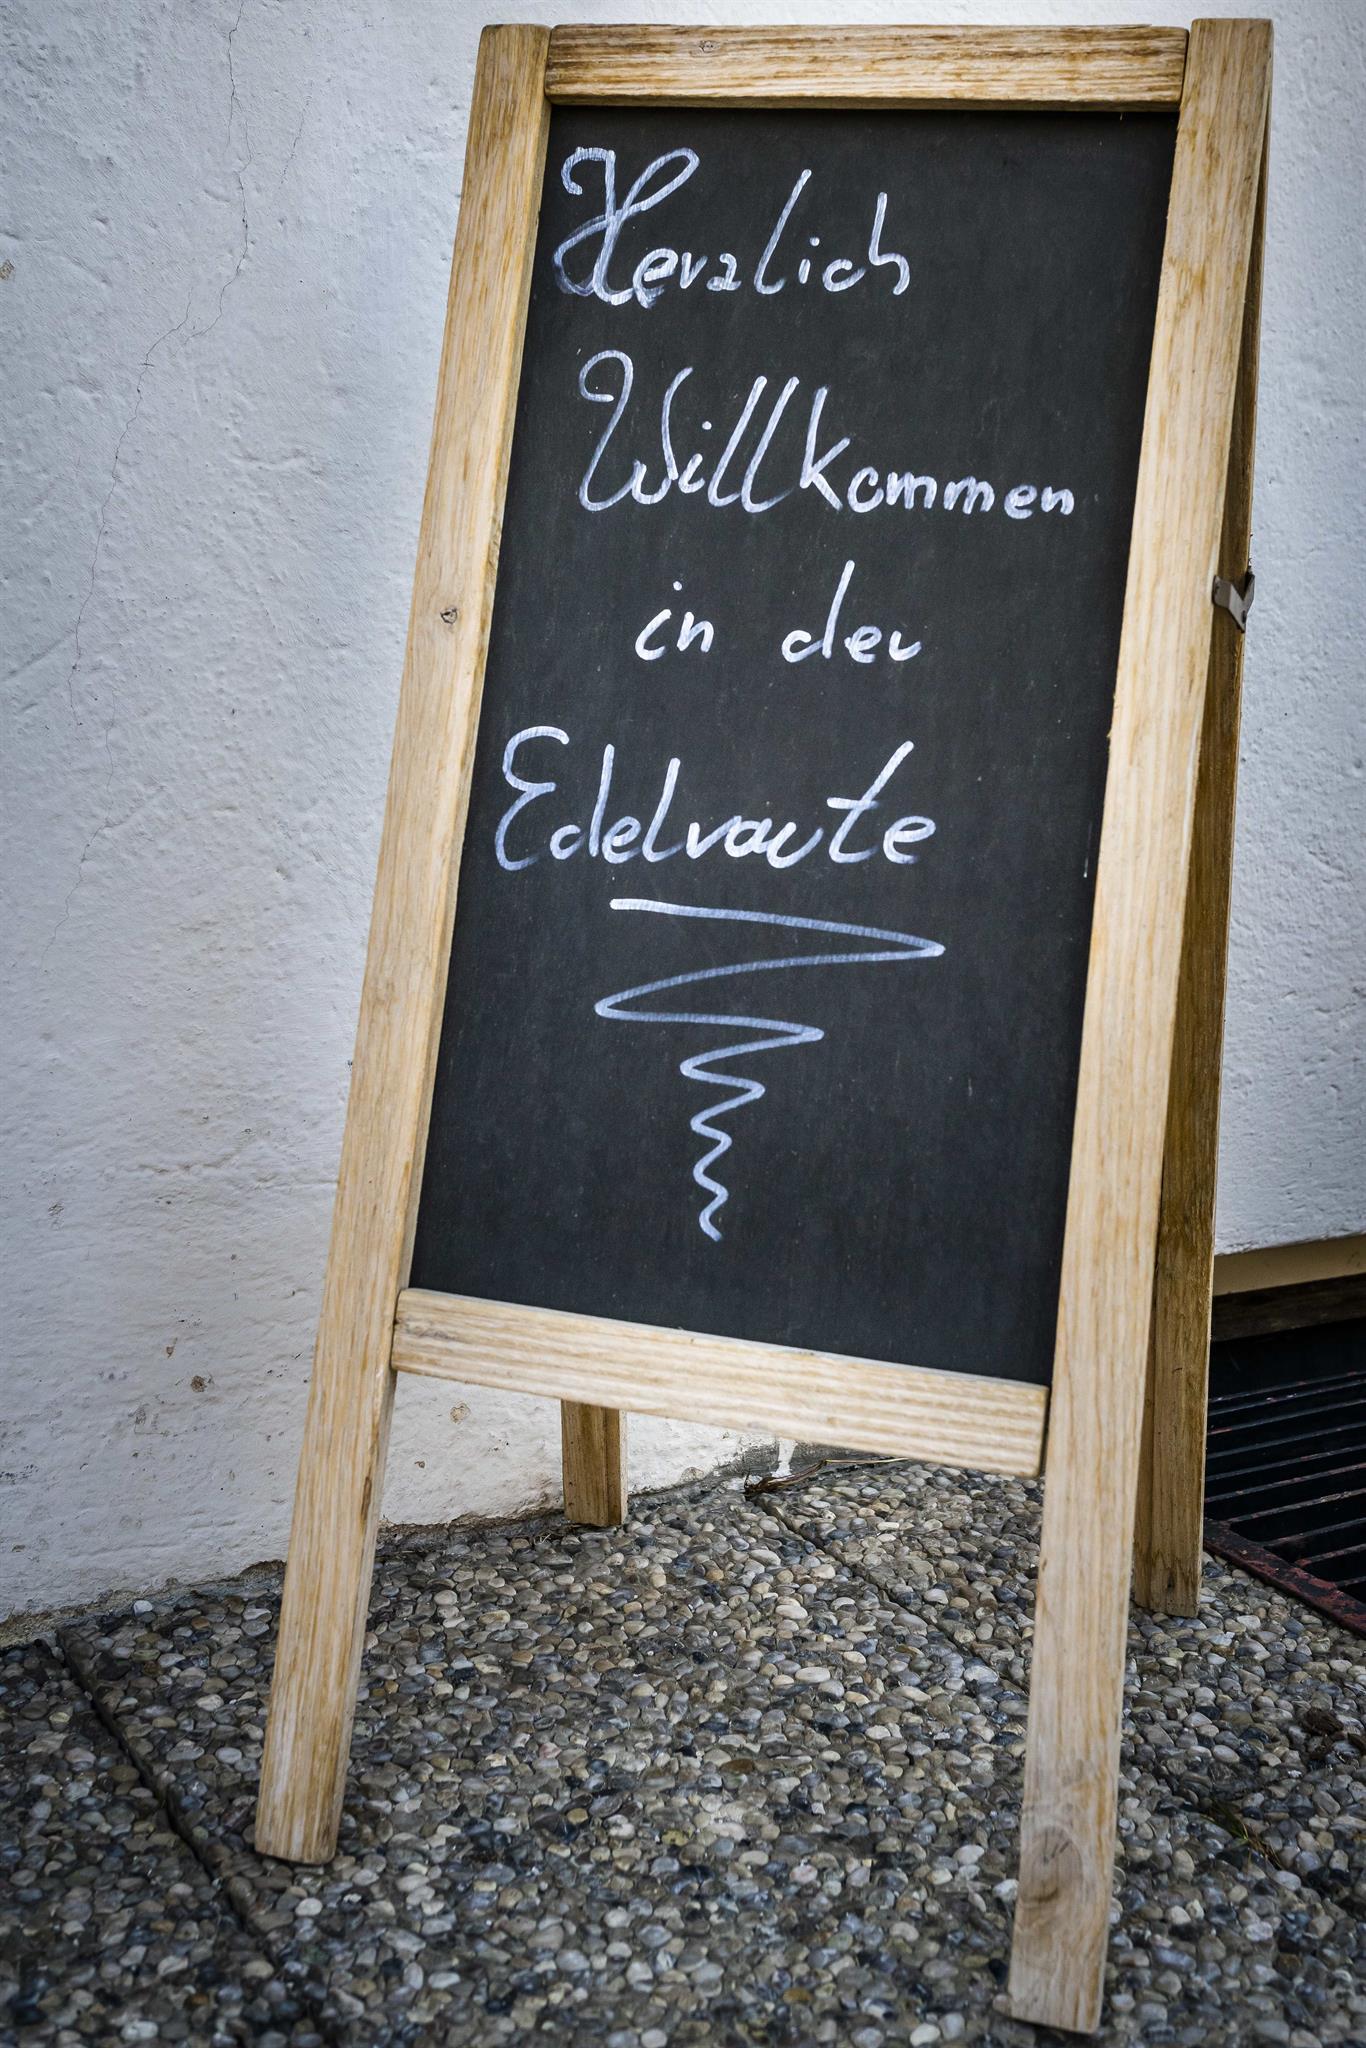 Herzlich
Willkommen
in der
Edelraute